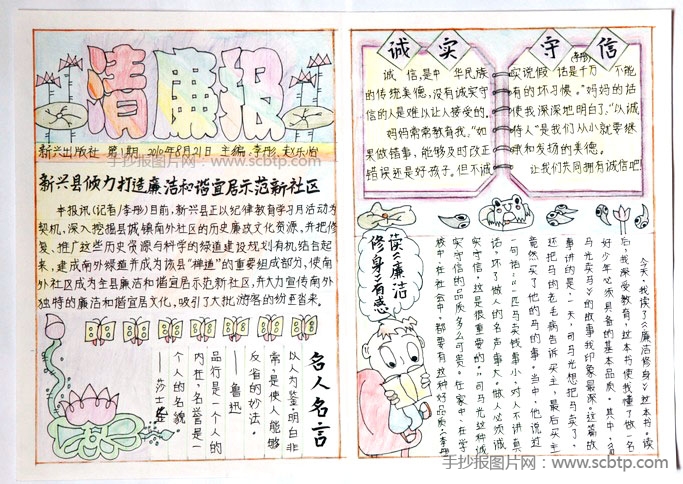 清廉报
新兴出版社 第1期 2010年8月21日 主编:李彤,赵乐怡
手抄报图片网:www.scbtp.com
新兴县倾力打造廉洁和谐宜居示范新社区
本报讯(记者/李彤)目前,新兴县正以纪律教育学习月活动为
契机,深入挖掘县城镇南外社区的历史廉政文化资源,并把修
复、推广这些历史资源与科学的绿道建设规划有机结合起
来,建成南外绿道并成为该县“禅道”的重要组成部分,使南
外社区成为全县廉洁和谐宜居示范新社区,并大力宣传南外
独特的廉洁和谐宜居文化,吸引了大批游客的纷至沓来。
名人名言
以人为鉴,明白非
常,是使人能够
反省的妙法。
——鲁迅
品行是一个人的
内在,名誉是一
个人的名貌
——莎士
诚实守信
(李彤)
诚、信,是中华民族
的传统美德,没有诚实守
信的人是难以让人接受的。
妈妈常常教育我,“如
果做错事,能够及时改正
错误还是好孩子。但不诚
实说假话是千万不能
有的坏习惯。”妈妈的话
使我深深地明白了,“以诚
待人”是我们从小就要继
承和发扬的美德。
让我们共同拥有诚信吧!
读《廉洁
修身》有感
今天,我读了《廉洁修身》这本书。读
后,我深受教育,这本书使我懂了做一名
好少年必须具备的基本品质。其中,《司
马光卖马》的故事我印象最深。这篇故
事讲的是:一天,司马光想把马卖了,
还把马的老毛病告诉买主,最后买主
竟然买了他的马的事。当中,他说过
一句话:“一匹马卖钱事小,对人不讲真
话,坏了做人的名声事大。做人必须诚
实守信,这是很重要的。”司马光这种诚
实守信的品质多么可贵。在家中、在学
校中、在社会中,都要有这种好品质(李彤)
手抄报图片网:www.scbtp.com